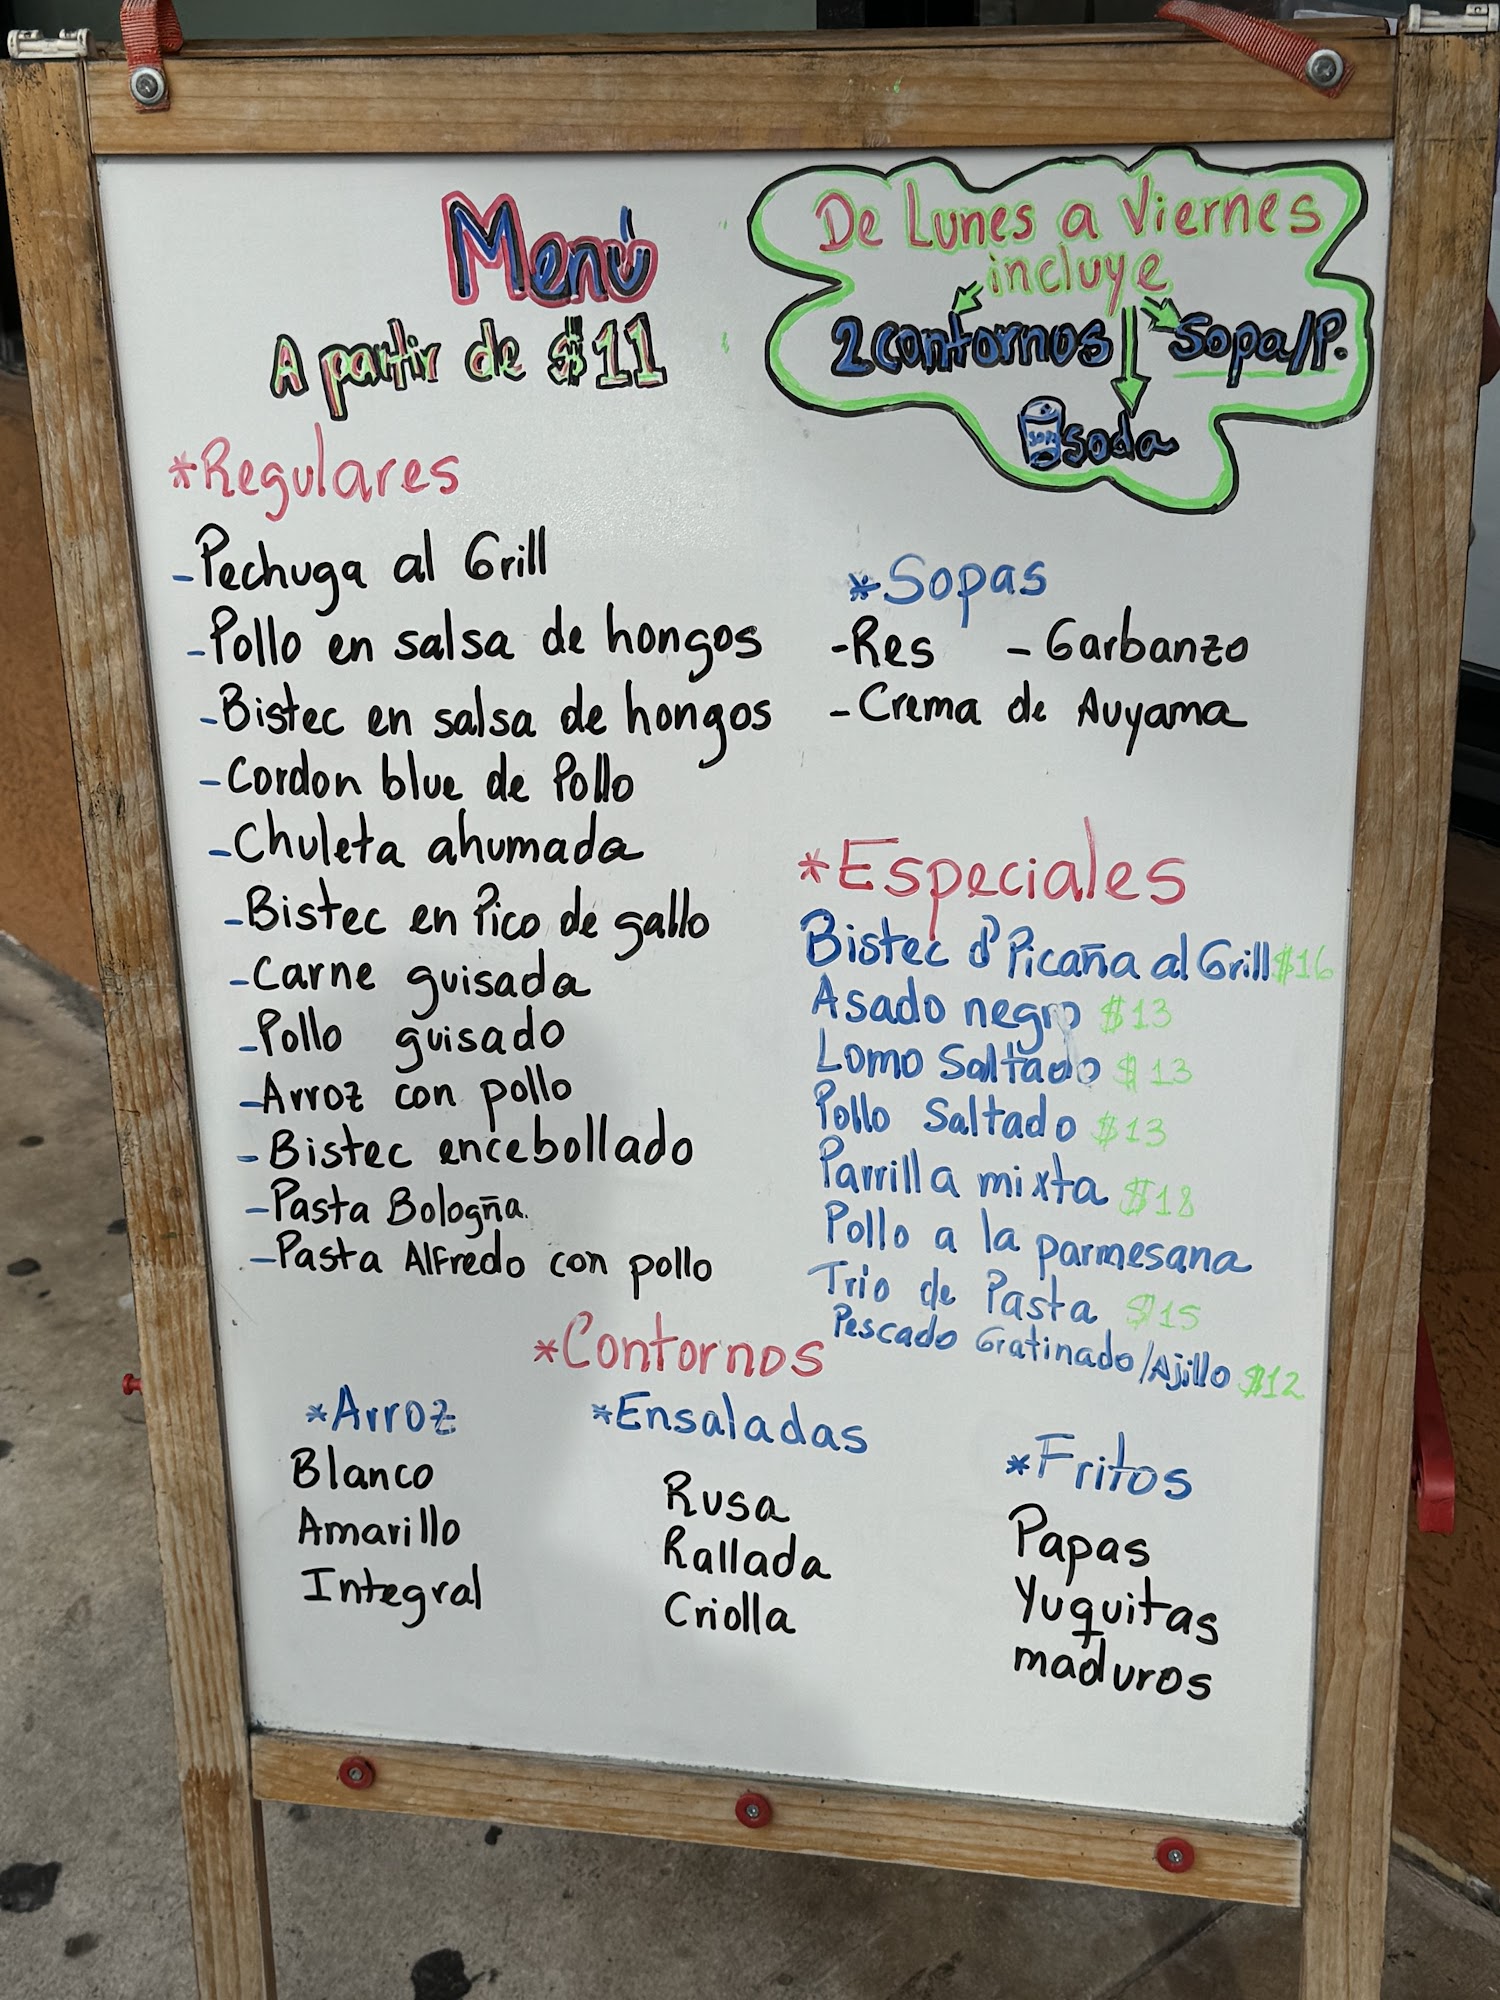 Menú
A partir de $11
De Lunes a Viernes
incluye
2 contornos
Sopa/P.
soda
*Regulares
-Pechuga al Grill
-Pollo en salsa de hongos
-Bistec en salsa de hongos
-Cordon blue de Pollo
-Chuleta ahumada
-Bistec en Pico de gallo
-Carne guisada
-Pollo guisado
-Arroz con pollo
-Bistec encebollado
-Pasta Bologña.
-Pasta Alfredo con pollo
*Sopas
-Res -Garbanzo
-Crema de Auyama
*Especiales
Bistec d' Picaña al Grill $16
Asado negro $13
Lomo Saltado $13
Pollo Saltado $13
Parrilla mixta $18
Pollo a la parmesana
Trio de Pasta $15
Pescado Gratinado/Ajillo $12
*Contornos
*Arroz
Blanco
Amarillo
Integral
*Ensaladas
Rusa
Rallada
Criolla
*Fritos
Papas
Yuquitas
maduros